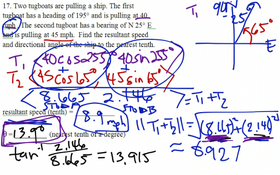 17. Two tugboats are pulling a ship. The first
tugboat has a heading of 195° and is pulling at 40
mph. The second tugboat has a bearing of N 25° E
and is pulling at 45 mph. Find the resultant speed
and directional angle of the ship to the nearest tenth.
T₁
N
90
25°
65°
E
T₁ 40cos255° 40sin255°
+ +
T₂ 45cos65° 45sin65°
8.665 2.146 = T₁+T₂
resultant speed (tenth) = 8.9 mph
||T₁+T₂|| = √(8.665)²+(2.146)²
θ = 13.9° (nearest tenth of a degree)
≈ 8.927
tan 2.146
8.665 = 13.915